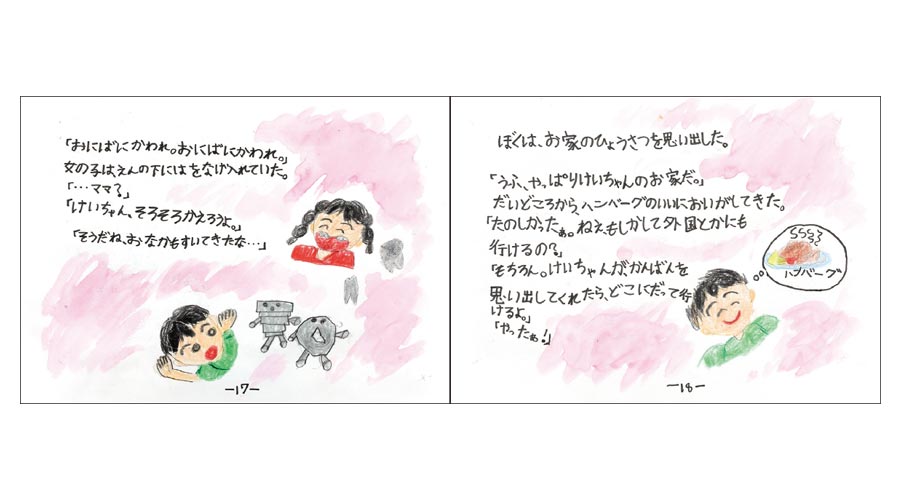 「おにばにかわれ。おにばにかわれ。」
女の子は、えんの下にはをなげ入れていた。
「…ママ?」
「けいちゃん、そろそろかえろうよ。」
「そうだね、おなかもすいてきたな…」
－17－
ぼくは、お家のひょうさつを思い出した。
「うふ、やっぱりけいちゃんのお家だ。」
だいどころから、ハンバーグのいいにおいがしてきた。
「たのしかったぁ。ねえ、もしかして外国とかにも
行けるの?」
「もちろん。けいちゃんが、かんばんを
思い出してくれたら、どこにだって行
けるよ。」
「やったぁ!」
ハンバーグ
－18－